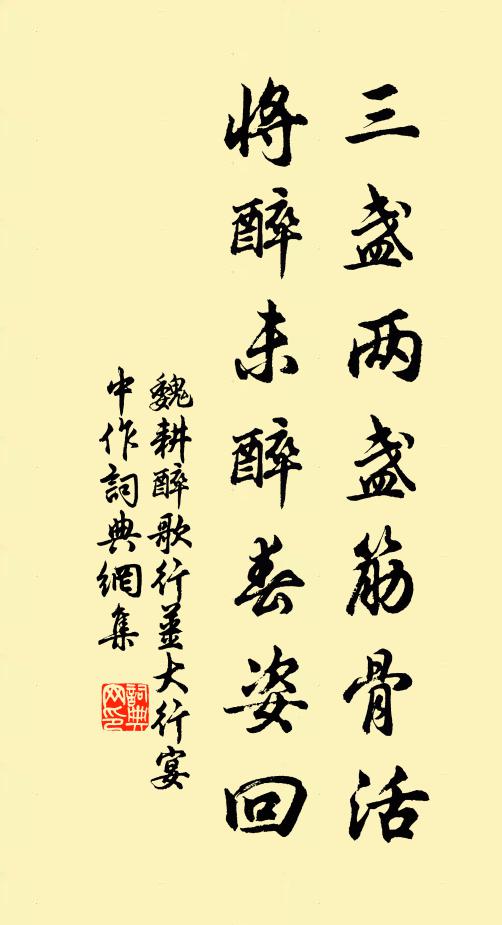 三盏两盏筋骨活
将醉未醉春姿回
魏耕醉歌行薑大行宴
中作詞典網集
詞典网印